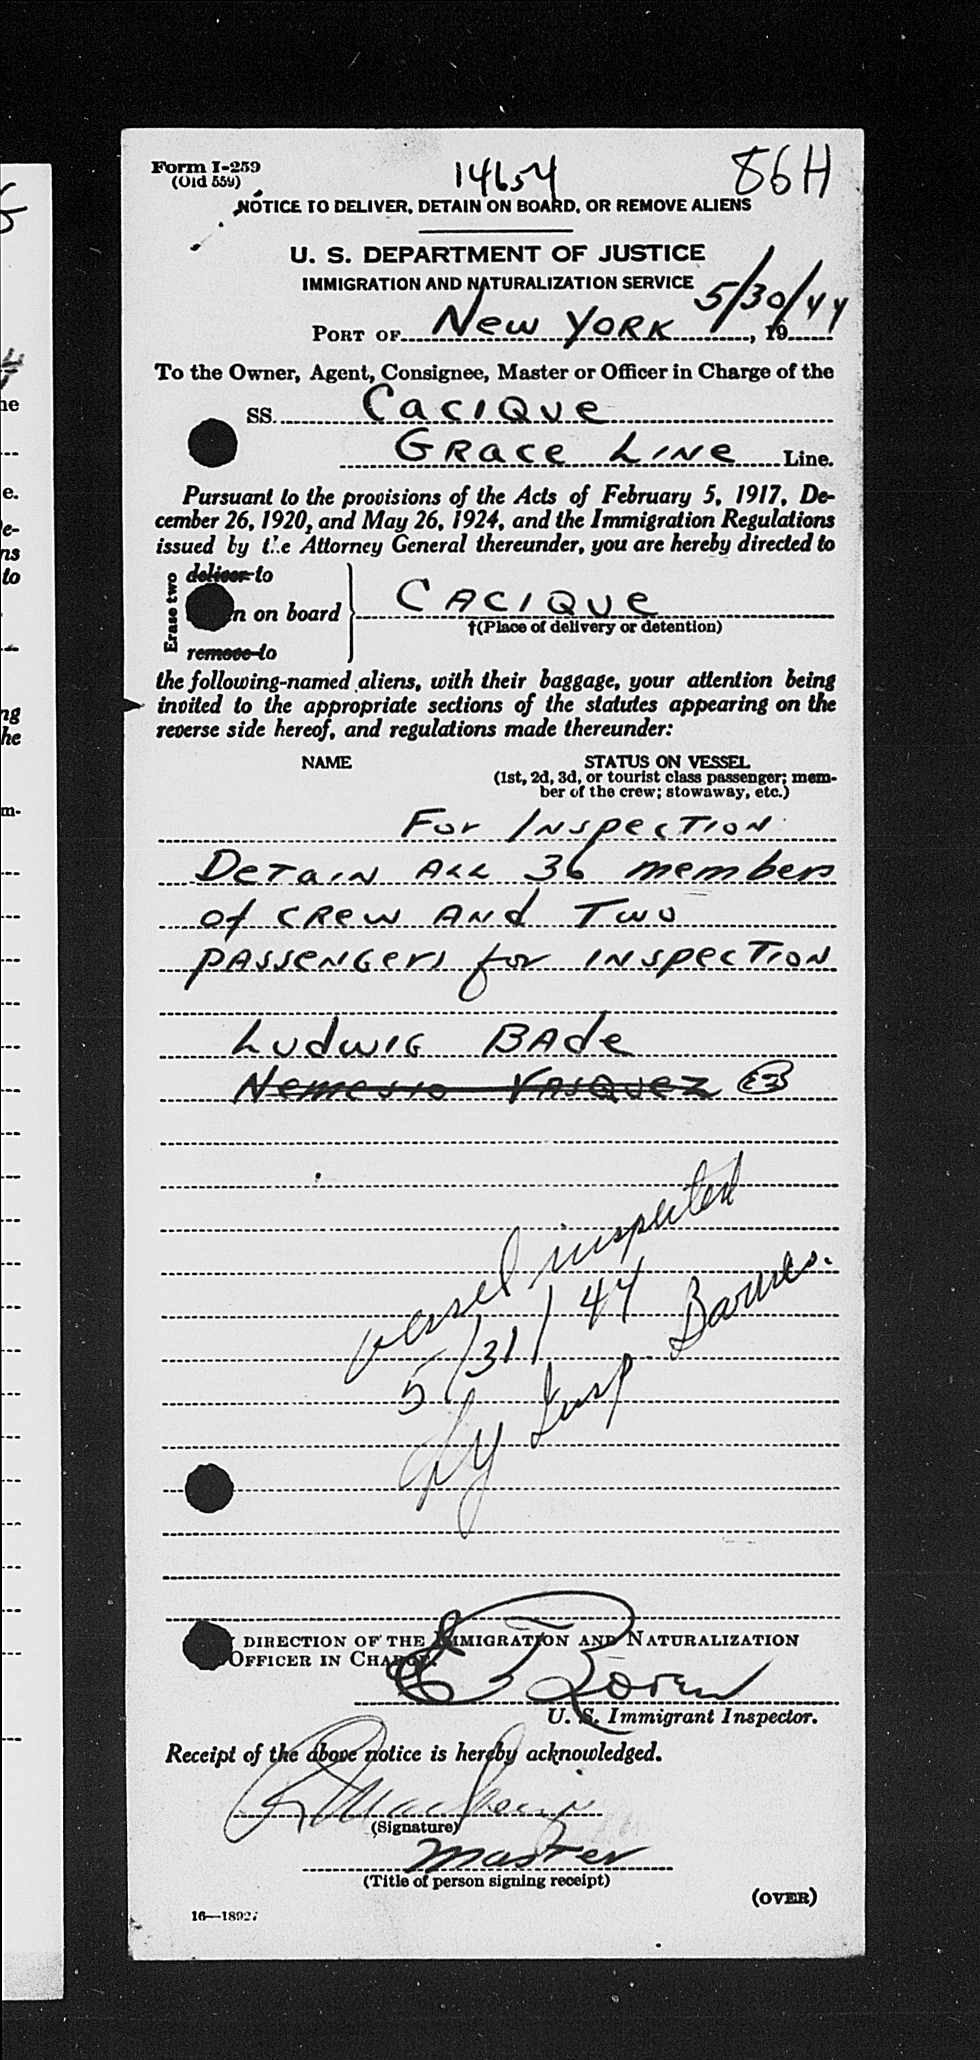 Form I-259
(Old 559)
14654
86H
NOTICE TO DELIVER, DETAIN ON BOARD, OR REMOVE ALIENS
U. S. DEPARTMENT OF JUSTICE
IMMIGRATION AND NATURALIZATION SERVICE
PORT OF New YORK 5/30/44, 19
To the Owner, Agent, Consignee, Master or Officer in Charge of the
SS. CACIQUe
GRACE LINe Line.
Pursuant to the provisions of the Acts of February 5, 1917, De-
cember 26, 1920, and May 26, 1924, and the Immigration Regulations
issued by the Attorney General thereunder, you are hereby directed to
Erase two
deliver to
n on board
CACIQUe
†(Place of delivery or detention)
remove to
the following-named aliens, with their baggage, your attention being
invited to the appropriate sections of the statutes appearing on the
reverse side hereof, and regulations made thereunder:
NAME
STATUS ON VESSEL
(1st, 2d, 3d, or tourist class passenger; mem-
ber of the crew; stowaway, etc.)
For INspecTION
DeTaiN ALL 36 members
of CRew ANd Two
PASSENGERS for INSpecTION
Ludwig BAde
Nemesio VASQuez
vessel inspected
5/31/44
by Insp Barnes.
DIRECTION OF THE IMMIGRATION AND NATURALIZATION
OFFICER IN CHARGE.
U. S. Immigrant Inspector.
Receipt of the above notice is hereby acknowledged.
(Signature)
master
(Title of person signing receipt)
(OVER)
16—18927